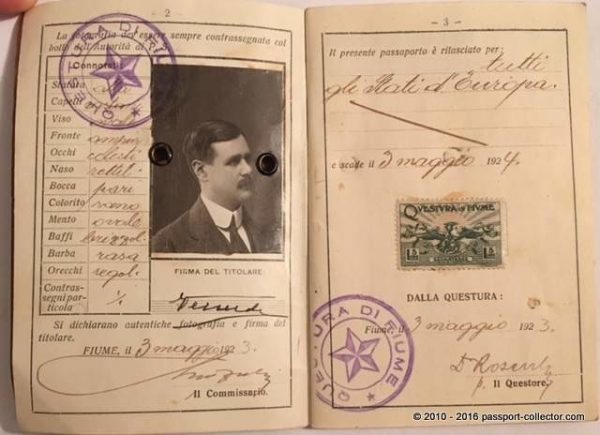 - 2 -
La fotografia dev'essere sempre contrassegnata col
bollo dell'Autorità di P.
Connotati
Statura
Capelli
Viso
Fronte ampia
Occhi celesti
Naso rettil.
Bocca pari
Colorito sano
Mento ovale
Baffi brizzol.
Barba rasa
Orecchi regol.
Contras-
segni par-
ticola
QUESTURA DI FIUME
FIRMA DEL TITOLARE
Si dichiarano autentiche fotografia e firma del
titolare.
FIUME, il 3 maggio 1923.
Il Commissario.
- 3 -
Il presente passaporto è rilasciato per: tutti
gli Stati d'Europa.
e scade il 3 maggio 1924.
QUESTURA DI FIUME
DALLA QUESTURA:
Fiume, il 3 maggio 1923.
p. Il Questore.
QUESTURA DI FIUME
© 2010 - 2016 passport-collector.com